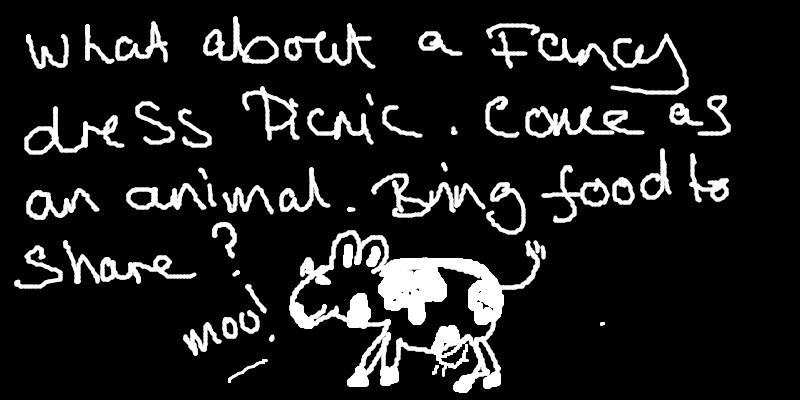 What about a Fancy
dress Picnic. Come as
an animal. Bring food to
share?
moo!